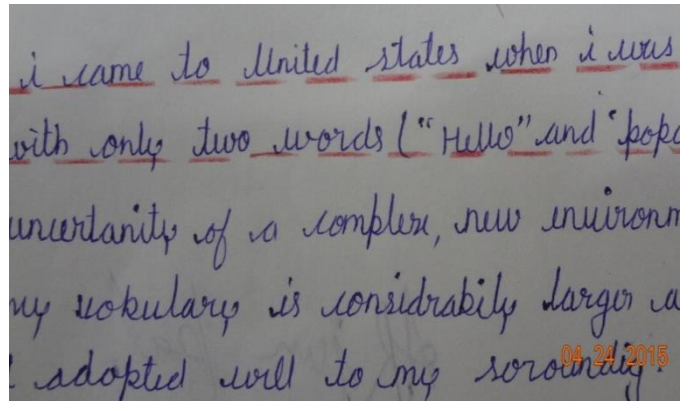 i came to United states when i was
with only two words ("Hello" and "popc
uncertanity of a complex, new environm
my vokulary is considrabily larger a
I adopted well to my soroundig.
04.24.2015